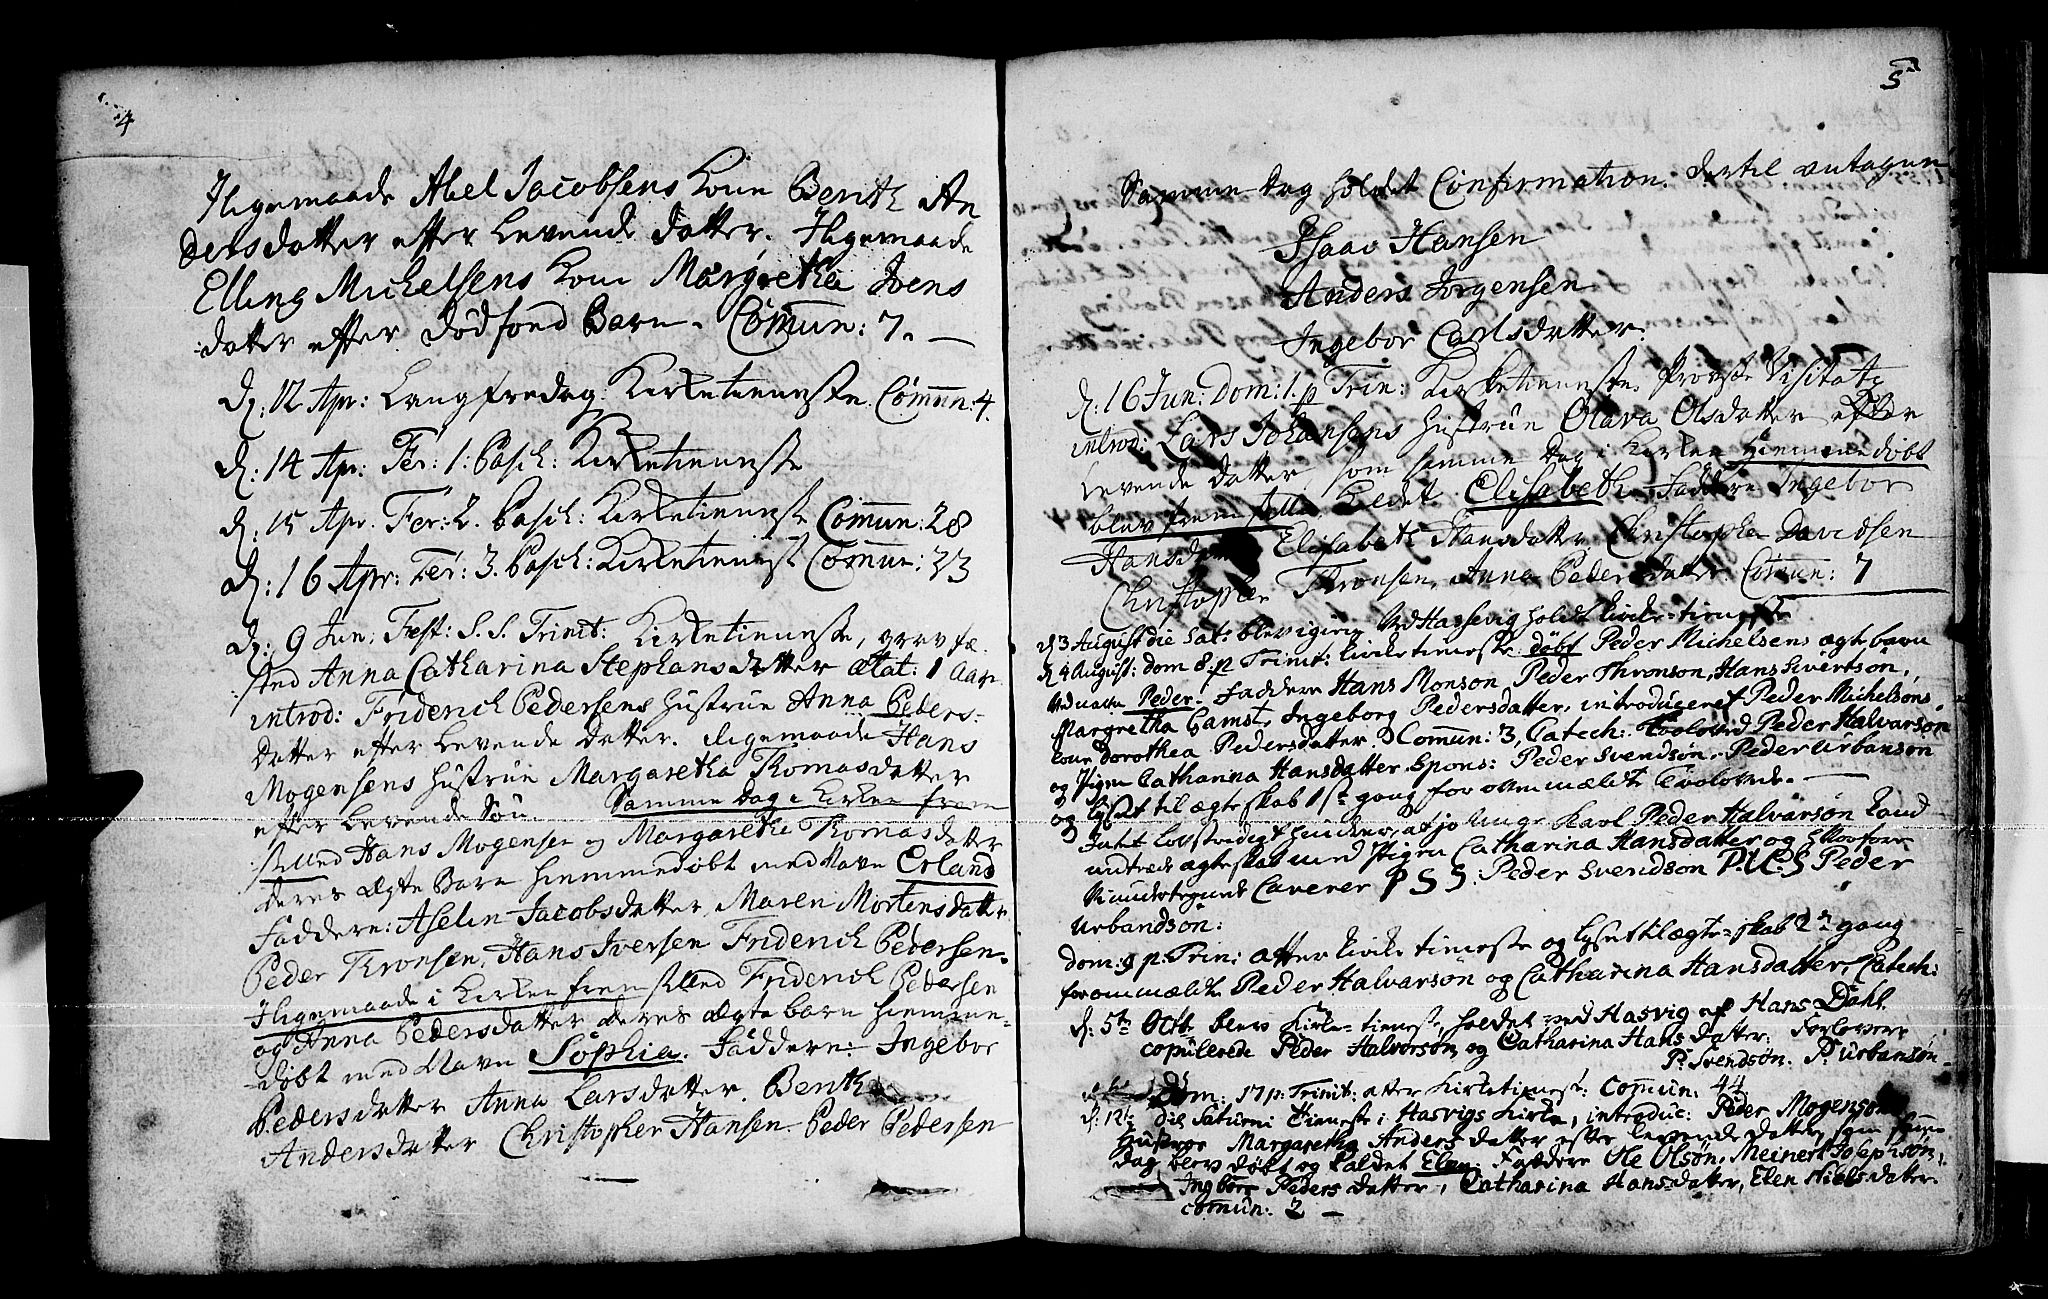 4
Iligemaade Abel Jacobsens Kone Berith An
dersdatter efter levende datter. Iligemaade
Elling Michelsens Kone Margretha Ivens
datter efter dødfød Barn. Com̄un: 7.
d: 12 Apr: Langfredag Kirketieneste Com̄un: 4.
d: 14 Apr: Fer: 1: Pasch: Kirketieneste
d: 15 Apr. Fer: 2. Pasch: Kirketieneste Com̄un: 28
d: 16 Apr: Fer: 3. Pasch: Kirketienest Com̄un: 33
d: 9 Jun: Fest: S. S. Trinit: Kirketieneste, gravfæ-
sted Anna Catharina Stephansdatter ætat: 1 Aar
introd: Friderich Pedersens Hustrue Anna Peders-
datter efter levende datter. Iligemaade Hans
Mogensens Hustrue Margaretha Thomasdatter
efter levende Søn. Samme Dag i Kirken frem
stilled Hans Mogensen og Margaretha Thomasdatter
deres Ægte Barn hiemmedøbt med Navn Erland
Faddere: Aselin Jacobsdatter, Maren Mortensdatter
Peder Thronsen, Hans Iversen Friderich Pedersen.
Iligemaade i Kirken fremstilled Friderich Pedersen
og Anna Pedersdatter deres ægte barn hiemme-
døbt med Navn Sophia. Faddere: Ingebor
Pedersdatter Anna Larsdatter. Berith
Andersdatter Christopher Hansen Peder Pedersen
5
Samme Dag holdet Confirmation. dertil antagen
Isaac Hansen
Anders Jørgensen
Ingebor Carlsdatter.
d: 16 Jun: Dom: 1. p Trin: Kirketieneste. Provste Visitatz
introd: Lars Johansens Hustrue Olava Olsdatter efter
levende datter, som samme Dag i Kirken hiemmedøbt
blev fremstillet kaldet Elisabeth Faddere Ingebor
Hansdatter Elisabeth Hansdatter Christopher Davidsen
Christopher Thronsen, Anna Pedersdatter Com̄un: 7
d 3 August die Sat: blev igien ved Hassvig holdt kirke-tieneste
d 4 August: dom 8. p Trinit: kirke tieneste døbt Peder Michelsens ægte barn
ved navn Peder. Faddere Hans Monson Peder Thronson, Hans Sivertsøn,
Margretha Gamst, Ingeborg Pedersdatter, introduceret Peder Michelsøns
kone Dorothea Pedersdatter. Com̄un: 3, Catech: trolovid Peder Halvarsøn
og Pigen Catharina Hansdatter, Spons: Peder Svendsøn, Peder Urbanson
og lyset til ægteskab 1ste gang for ommældte trolovede.
Intet lovstridigt hindrer, at jo unge Karl Peder Halvarsøn kand
indtræde ægteskab med Pigen Catharina Hansdatter og herfore
Vi undertegnede Caverer P S S. Peder Svendsøn P. U. S Peder
Urbandsøn:
dom: 9 p. Trin: atter kirke tieneste og lyset til ægte-skab 2den gang
for ommældte Peder Halvarsøn og Catharina Hansdatter, Catech:
d: 5te Octb blev kirke-tieneste, holdet ved Hasvig af Hans Dahl
copulerede Peder Halvorsøn og Catharina Hans datter: Forlovere
P: Svendsøn: P: Urbansøn-
Dom: 17 p: Trinit: atter Kirketienest: Com̄un: 44
d: 12te die Saturni tieneste i Hasvigs Kirke, introduc: Peder Mogensøns
Hustroe Margaretha Anders datter efter levende datter som samme
Dag blev døbt og kaldet Elen. Faddere Ole Olsøn, Meinert Josephsøn,
Ingbor Peders datter, Catharina Hans-datter, Elen Niels datter
com̄un: 2